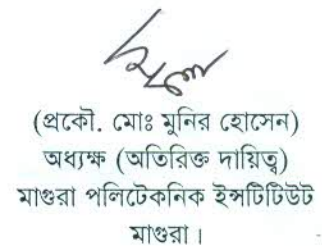 (প্রকৌ. মোঃ মুনির হোসেন)
অধ্যক্ষ (অতিরিক্ত দায়িত্ব)
মাগুরা পলিটেকনিক ইন্সটিটিউট
মাগুরা।